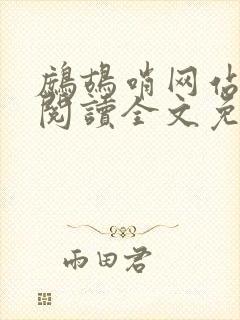 鷓鴣哨网佔
閱讀全文免
雨田君